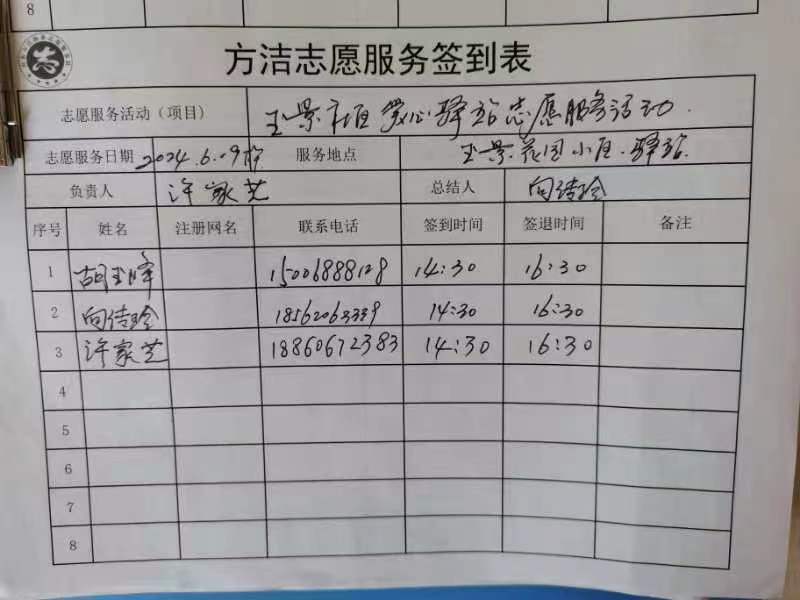 8
方洁志愿服务签到表
志愿服务活动（项目） 玉景社区爱心驿站志愿服务活动.
志愿服务日期 2024.6.09 服务地点 玉景花园小区.驿站.
负责人 许家芝 总结人 向结玲
序号 姓名 注册网名 联系电话 签到时间 签退时间 备注
1 胡玉峰 15006888128 14:30 16:30
2 向结玲 18562063339 14:30 16:30
3 许家芝 18860672383 14:30 16:30
4
5
6
7
8